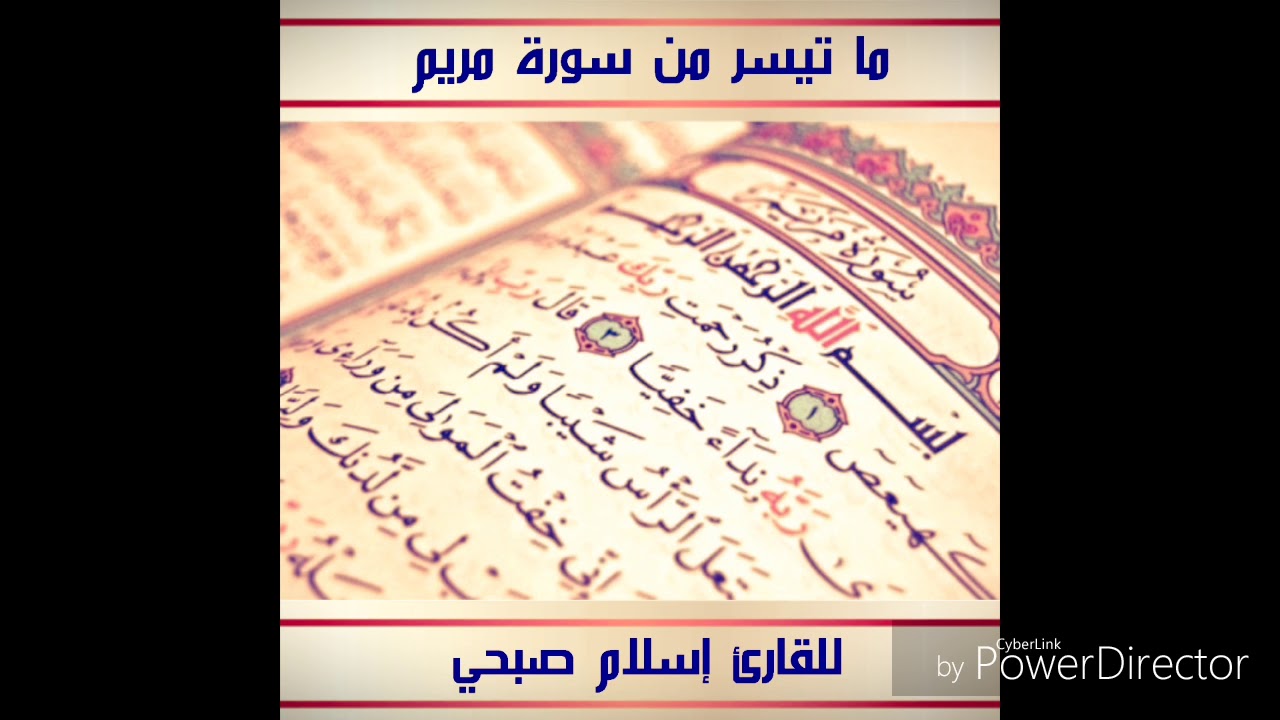 ما تيسر من سورة مريم
سُورَةُ مَرْيَمَ
بِسْمِ اللَّهِ الرَّحْمَٰنِ الرَّحِيمِ
كٓهيعٓصٓ ١ ذِكْرُ رَحْمَتِ رَبِّكَ
رَبَّهُۥ نِدَآءً خَفِيًّا ٣ قَالَ رَبِّ
ٱلرَّأْسُ شَيْبًا وَلَمْ أَكُنۢ
إِنِّى خِفْتُ ٱلْمَوَٰلِىَ مِن وَرَآءِى
لِى مِن لَّدُنكَ وَلِيًّا
للقارئ إسلام صبحي
by CyberLink PowerDirector